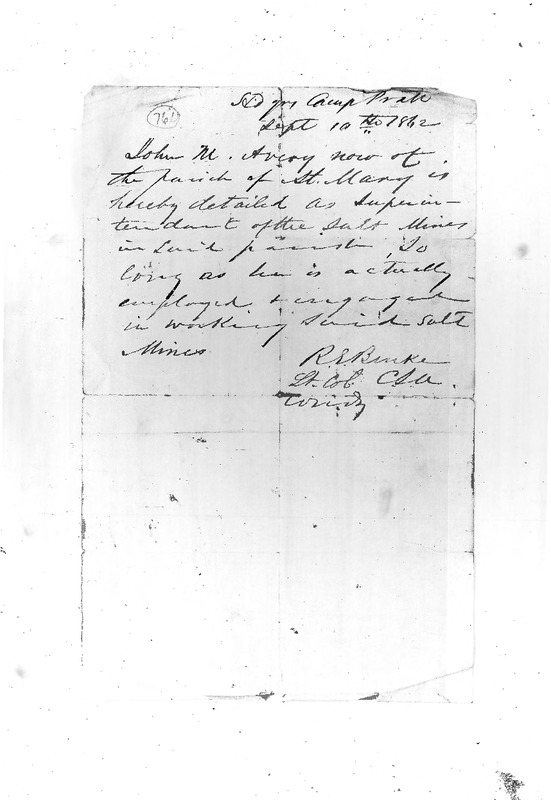 761
Hd qrs Camp Pratt
Sept 10th 1862
John M. Avery now of
the parish of St. Mary is
hereby detailed as Superin-
tendant of the Salt Mines
in Said parish, So
long as he is actually
employed & engaged
in working Said Salt
Mines
R E Burke
Lt. Col. CSA.
Comdg